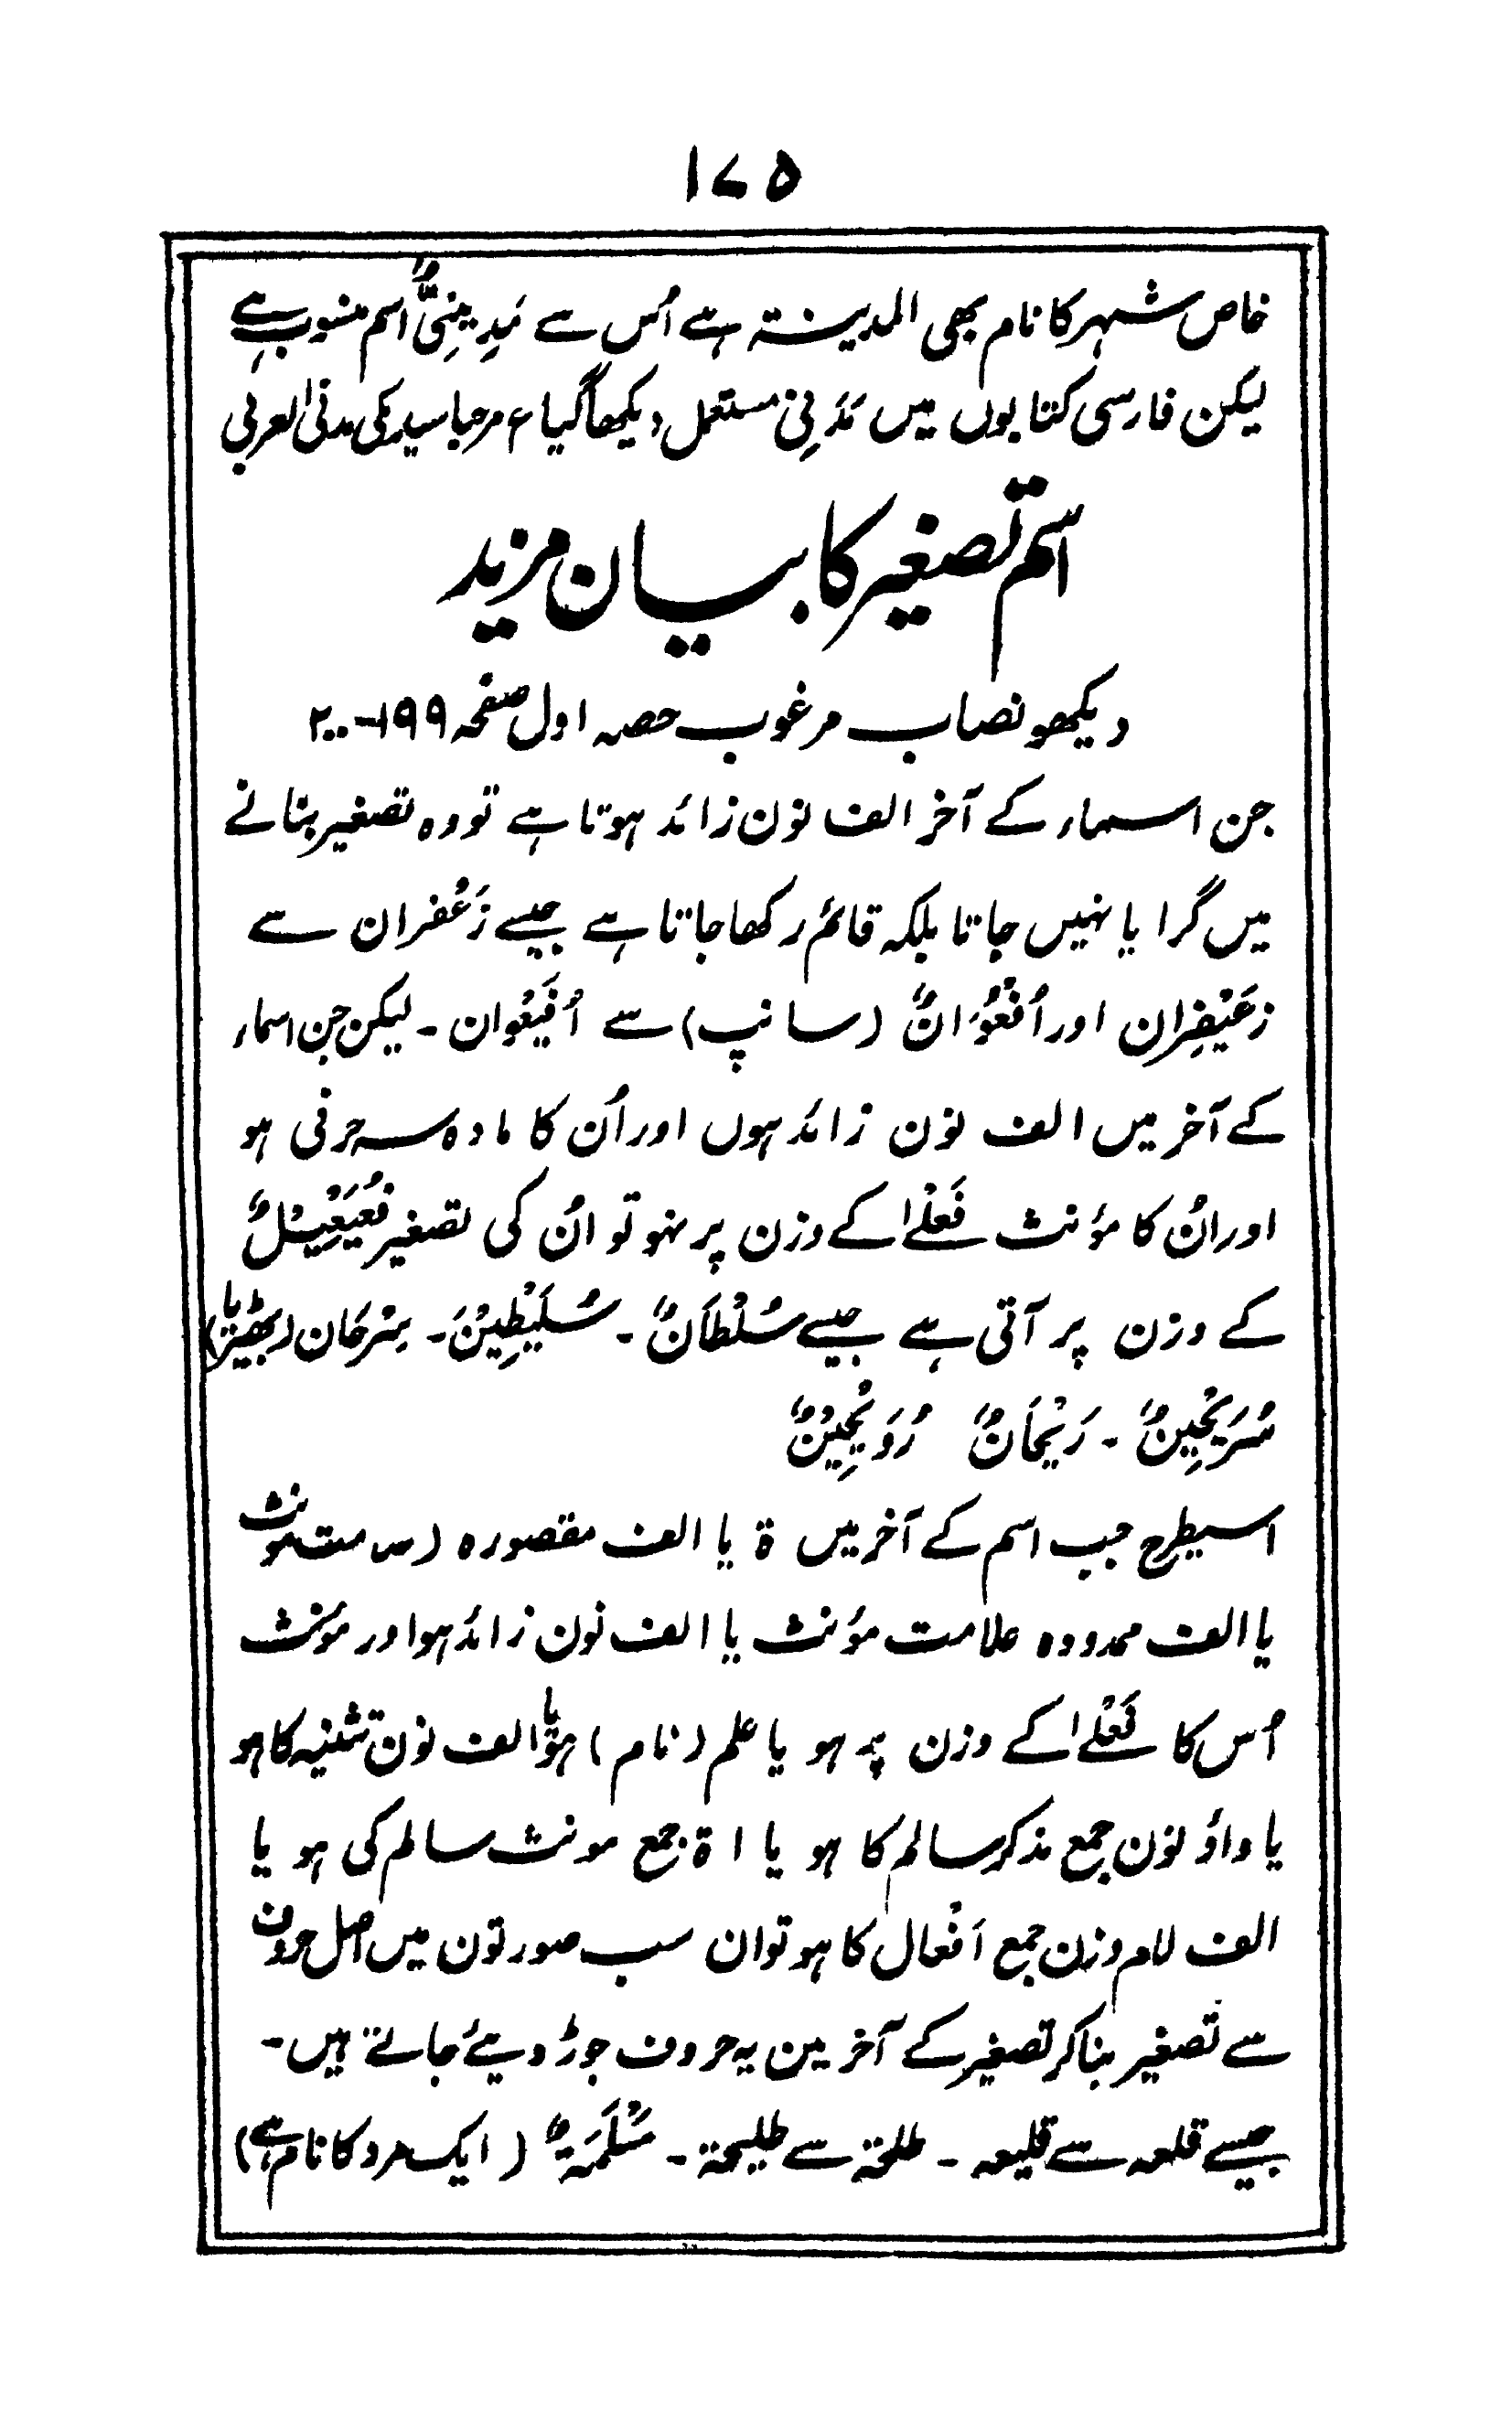 ۱۷۵
خاص شہر کا نام بھی المدینۃ ہے اُس سے مَدِیْنِیٌّ اسم منسوب ہے
لیکن فارسی کتابوں میں مَدَنِی مستعمل دیکھا گیا ع مرحبا سید مکی مدنی العربی
اسم تصغیر کا بیان مزید
دیکھو نصاب مرغوب حصہ اول صفحہ ۱۹۹-۲۰۰
جن اسماء کے آخر الف نون زائد ہوتا ہے تو وہ تصغیر بنانے
میں گرا یا نہیں جاتا بلکہ قائم رکھا جاتا ہے جیسے زَعْفران سے
زعَیْفِران اور اُفْعُوَانٌ (سانپ) سے اُفَیْعُوان ۔ لیکن جن اسماء
کے آخر میں الف نون زائد ہوں اور اُن کا مادہ سہ حرفی ہو
اور اُن کا مؤنث فَعْلےٰ کے وزن پر نہو تو اُن کی تصغیر فُعَیْعِیْلٌ
کے وزن پر آتی ہے جیسے سُلْطَانٌ ۔ سُلَیْطِیْنٌ ۔ سِرْحَان (بھیڑیا)
سُرَیْحِیْنٌ ۔ رَیْحَانٌ رُوَیْحِیْنٌ
اسیطرح جب اسم کے آخر میں ۃ یا الف مقصورہ (علامت مونث
یا الف ممدودہ علامت مؤنث یا الف نون زائد ہو اور مؤنث
اُس کا فَعْلےٰ کے وزن پر ہو یا علم (نام) ہو یا الف نون تثنیہ کا ہو
یا واؤ نون جمع مذکر سالم کا ہو یا ا ۃ جمع مونث سالم کی ہو یا
الف لام وزن جمع اَفْعال کا ہو تو ان سب صورتون میں اصل حروف
سے تصغیر بنا کر تصغیر کے آخر مین یہ حروف جوڑ دیئے جاتے ہیں ۔
جیسے قلعہ سے قلیعہ ۔ طلحۃ سے طلیحۃ ۔ سُلَمَۃٌ (ایک مرد کا نام ہے)